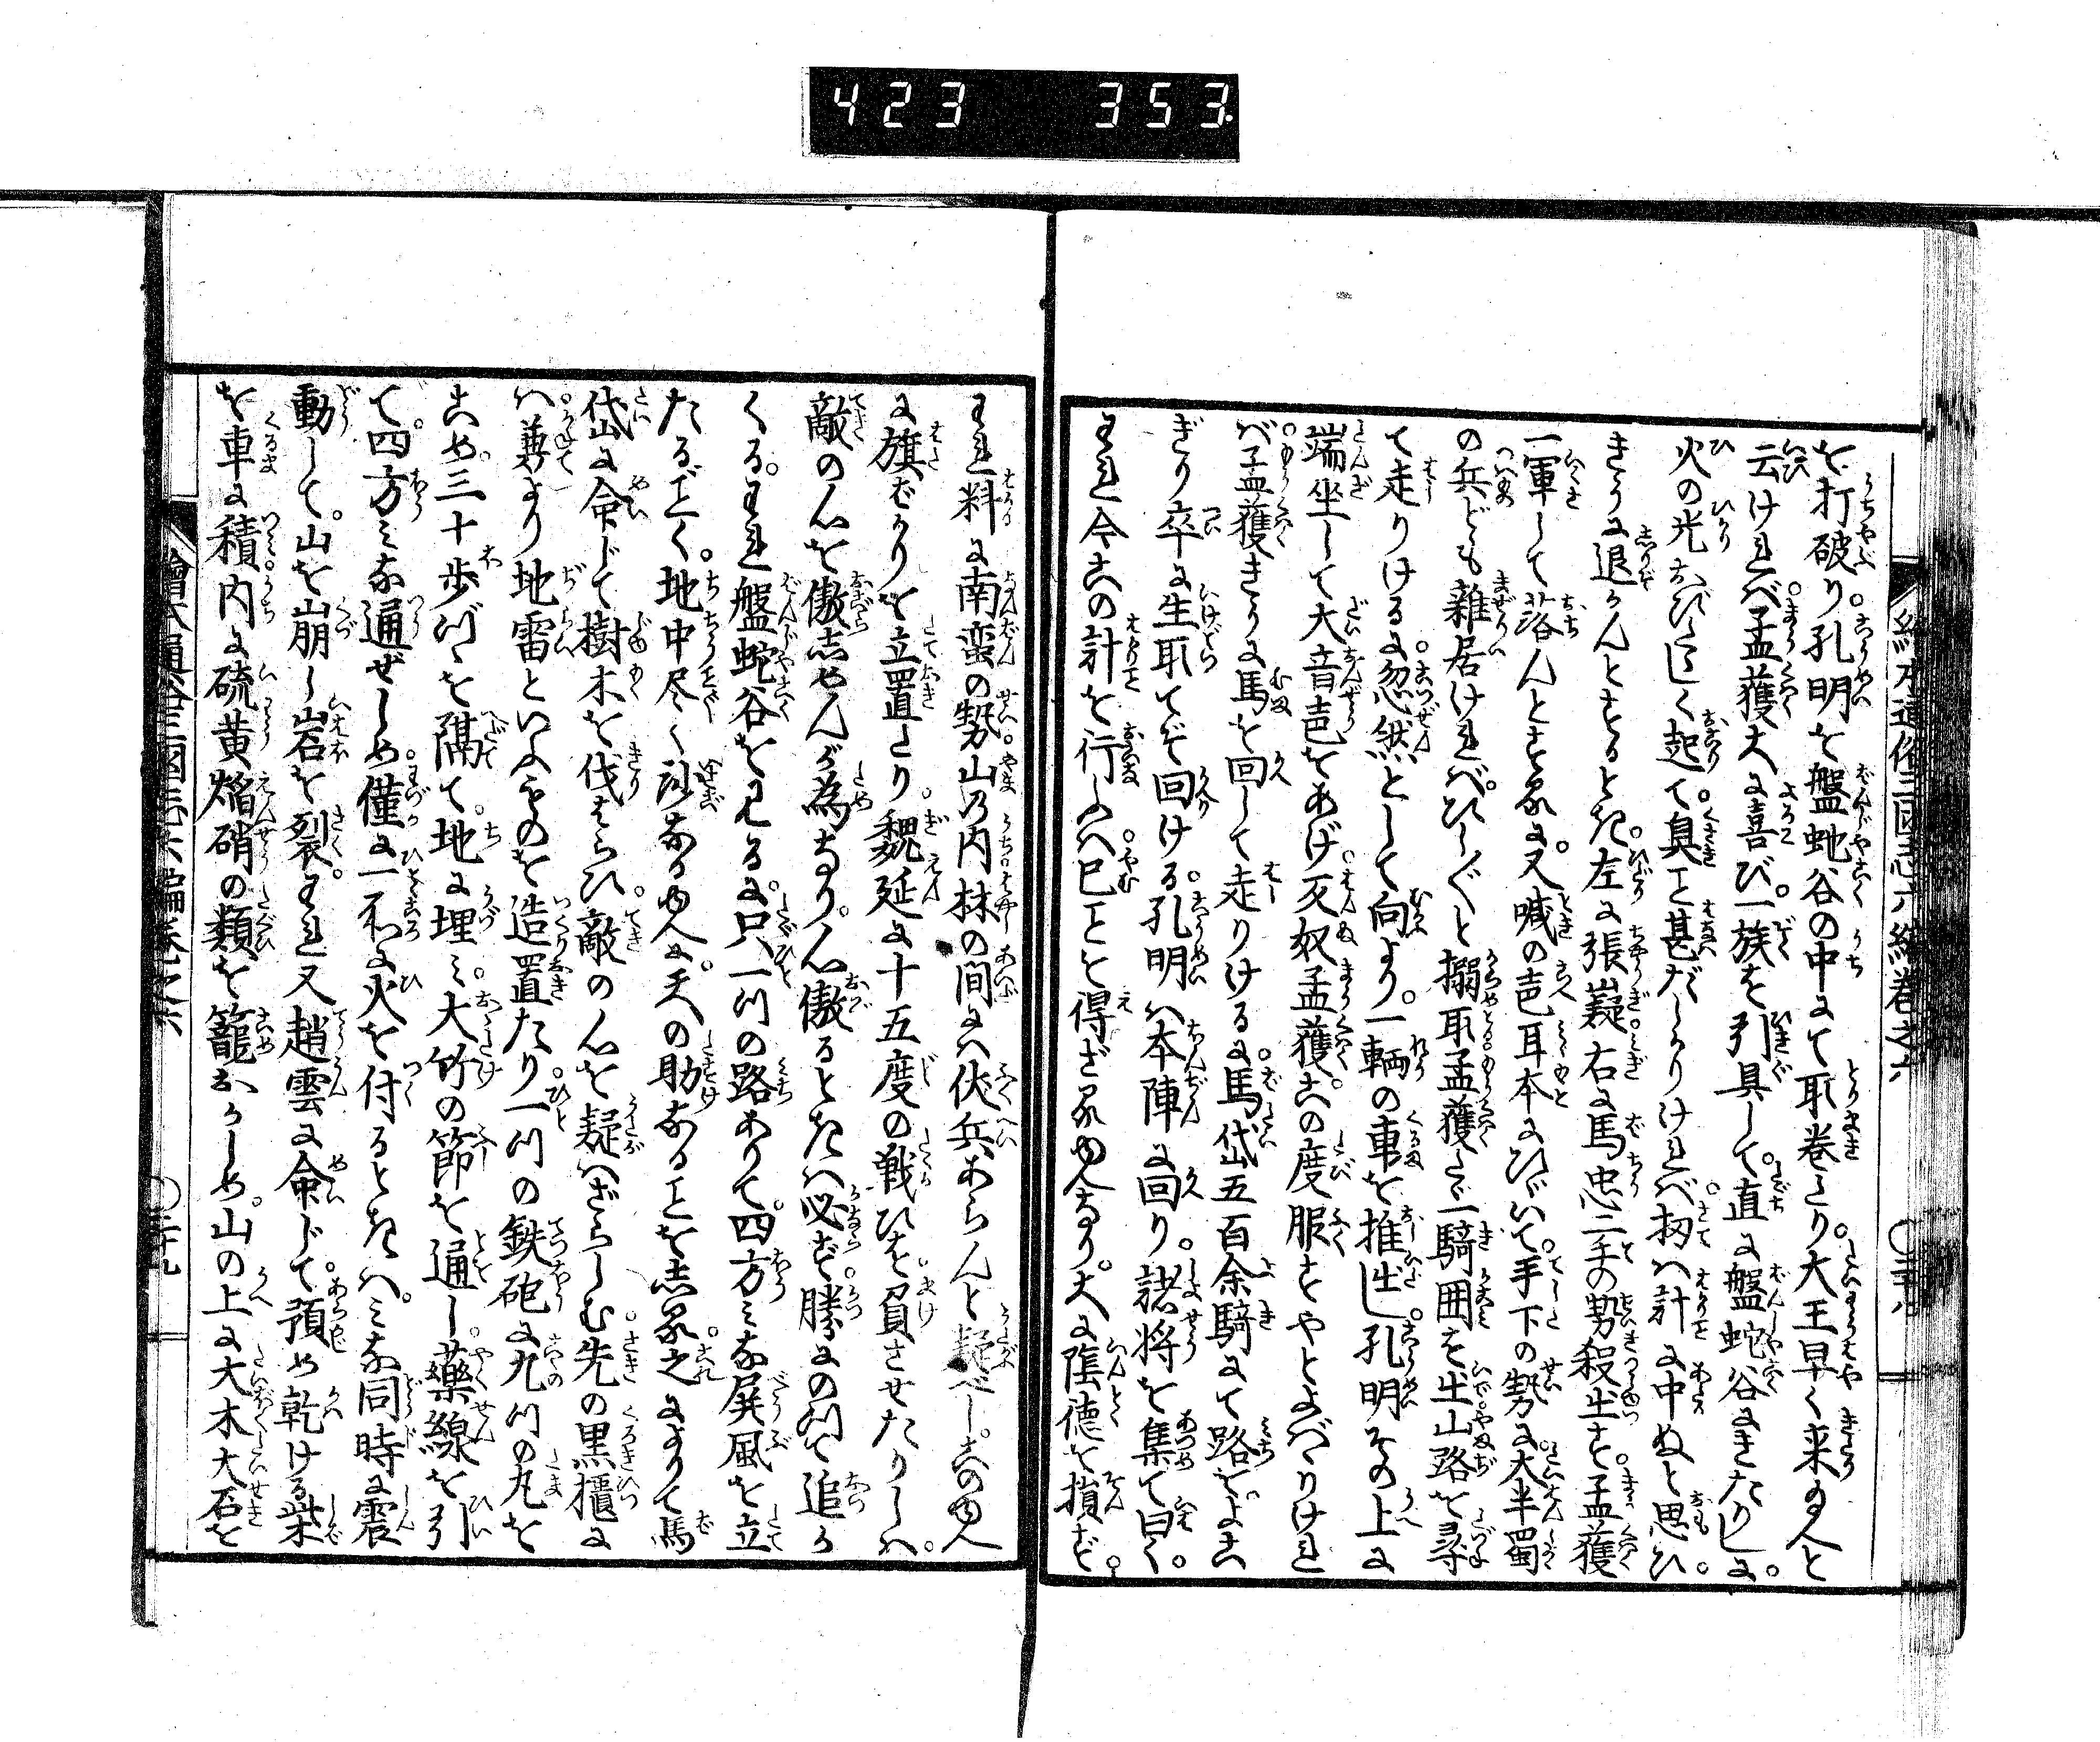 423 353
絵本通俗三国志六編巻之六
〇三十八
を打破り。孔明を盤蛇谷の中にて取巻たり。大王早く来り玉へと
云ければ。孟獲大に喜び。一族を引具して。直に盤蛇谷にきたりしに。
火の光おびたゞしく起て。臭こと甚だしかりければ。扨は計に中ぬと思ひ。
きうに退かんとするとき。左に張嶷。右に馬忠二手の勢殺出す。孟獲
一軍して落んとする所に。又喊の声耳本にひゞいて。手下の勢に。大半蜀
の兵ども雑居ければ。ひし〳〵と搦取。孟獲たゞ一騎囲を出。山路を尋
て走りけるに。忽然として向より。一輌の車を推出し。孔明その上に
端坐して大音声をあげ。反奴孟獲。此の度服すやとよばゝりけれ
ば。孟獲きうに馬を回して走りけるに。馬岱五百余騎にて路をよこ
ぎり卒に生取てぞ回ける。孔明は本陣に回り。諸将を集て曰く。
われ今此の計を行しは。已ことを得ざる所なり。大に陰徳を損ず。
われ料に南蛮の勢。山の内。林の間には伏兵あらんと疑べし。此の所
に旗ばかりを立置たり。魏延に十五度の戦ひを負させたりしは。
敵の心を傲しめんが為なり。心傲るときは必ず。勝にのつて追か
くる。われ盤蛇谷を見るに。只一つの路ありて。四方みな屏風を立
たるごとく。地中尽く沙なるゆへに。天の助なることを知る。之によりて馬
岱に命じて樹木を伐はらひ。敵の心を疑はざらしむ。先の黒櫃に
は。兼てより地雷といふものを造置たり。一つの鉄砲に九つの丸を
こめ。三十歩づゝを隔て。地に埋み。大竹の節を通し。薬線を引
て。四方みな通ぜしめ。僅に一所に火を付るときは。みな同時に震
動して。山を崩し岩を裂。われ又趙雲に命じて。預め乾ける柴
を車に積。内に硫黄焔硝の類を籠おかしめ。山の上に大木大石を
絵本通俗三国志六編巻之六
〇三十九